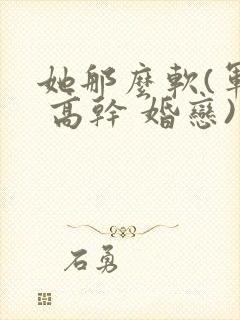 她那麼軟(軍
高幹 婚戀)
石勇